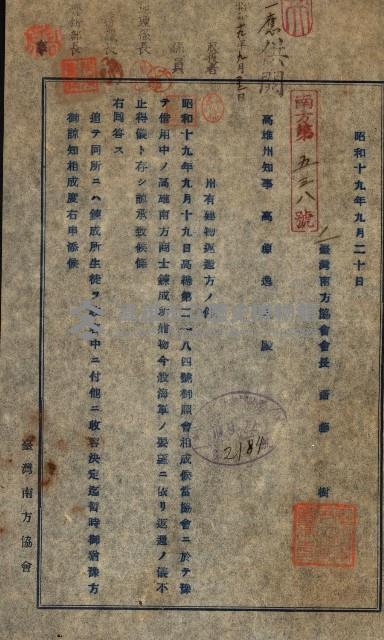 一應供閱
昭和十九年九月二十日
南方第五三八號
臺灣南方協會會長 齋藤 樹
高雄州知事 高原逸人 殿
州有建物返還方ノ件
昭和十九年九月十九日高總第二一八四號御照會相成候當協會ニ於テ豫
テ借用中ノ高雄南方商士鍊成所建物今般海軍ノ要望ニ依リ返還ノ儀不
止得儀ト存シ諒承致候條
右回答ス
追テ同所ニハ鍊成所生徒ヲ中ニ付他ニ收容決定迄暫時御猶豫方
御諒知相成度右申添候
臺灣南方協會
2184